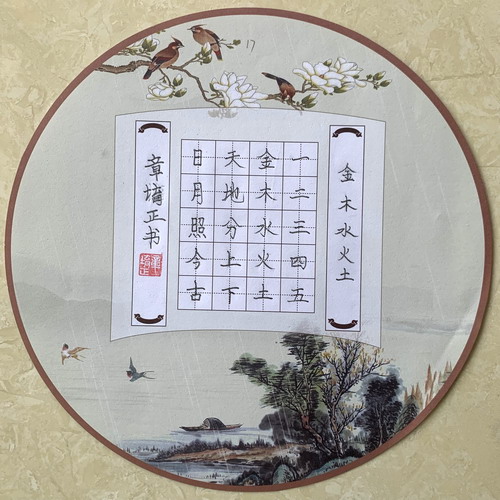 金木水火土
一二三四五
金木水火土
天地分上下
日月照今古
章堉正书
17